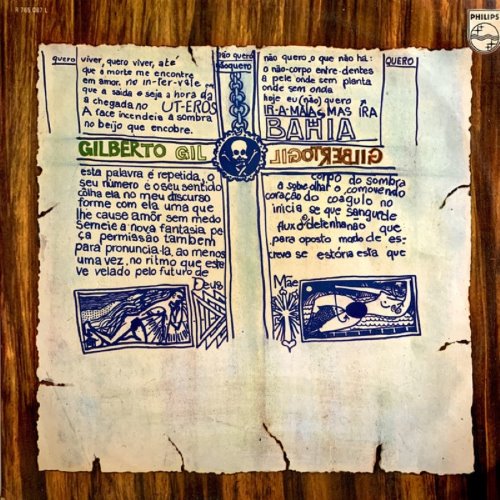 R 765 087 L
PHILIPS
quero
viver, quero viver, até
que a morte me encontre
em amor, no in-ter-vale
que a saida e seja a hora da
a chegada no UT-EROS
A face incendeia a sombra
no beijo que encobre.
não quero
não quero
não quero, o que não há:
o não-corpo entre-dentes
a pele onde sem planta
onde sem onda
hoje eu (não) quero
IR-A-MÁ-AS MAS IRÁ
BAHIA
QUERO
GILBERTO GIL
GILBERTO GIL
esta palavra é repetida, o
seu número é o seu sentido
colha ela no meu discurso
forme com ela uma que
lhe cause amôr sem medo
Semeie a nova fantasia pe
ça permissão também
para pronuncia-la, ao menos
uma vez, no ritmo que este
ve velado pelo futuro de
Deus
corpo do sombra
a sobre olhar o, comovendo
coração do coagulo no
inicia se que sangue de
fluxo detenha não que
para oposto modo de es-
creva se estória esta que
Mãe